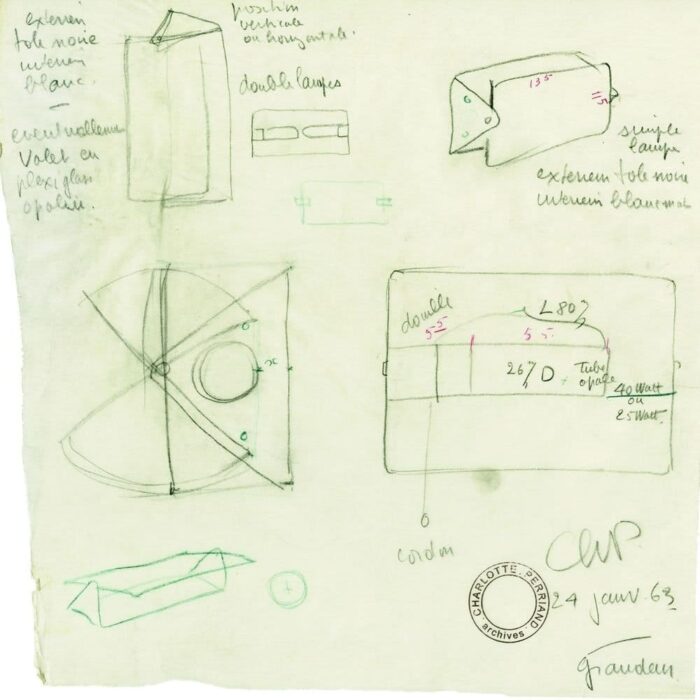 exterieur
tole noire
interieur
blanc.
—
eventuellement
Volet en
plexiglass
opalin.
position
verticale
ou horizontale.
double lampes
135
5
simple
lampe
exterieur tole noire
interieur blanc mat
x
douille
55
L 80
55
26 D
Tube
opale
40 Watt
ou
25 Watt.
cordon
ChP.
CHARLOTTE PERRIAND
archives
24 janv. 63